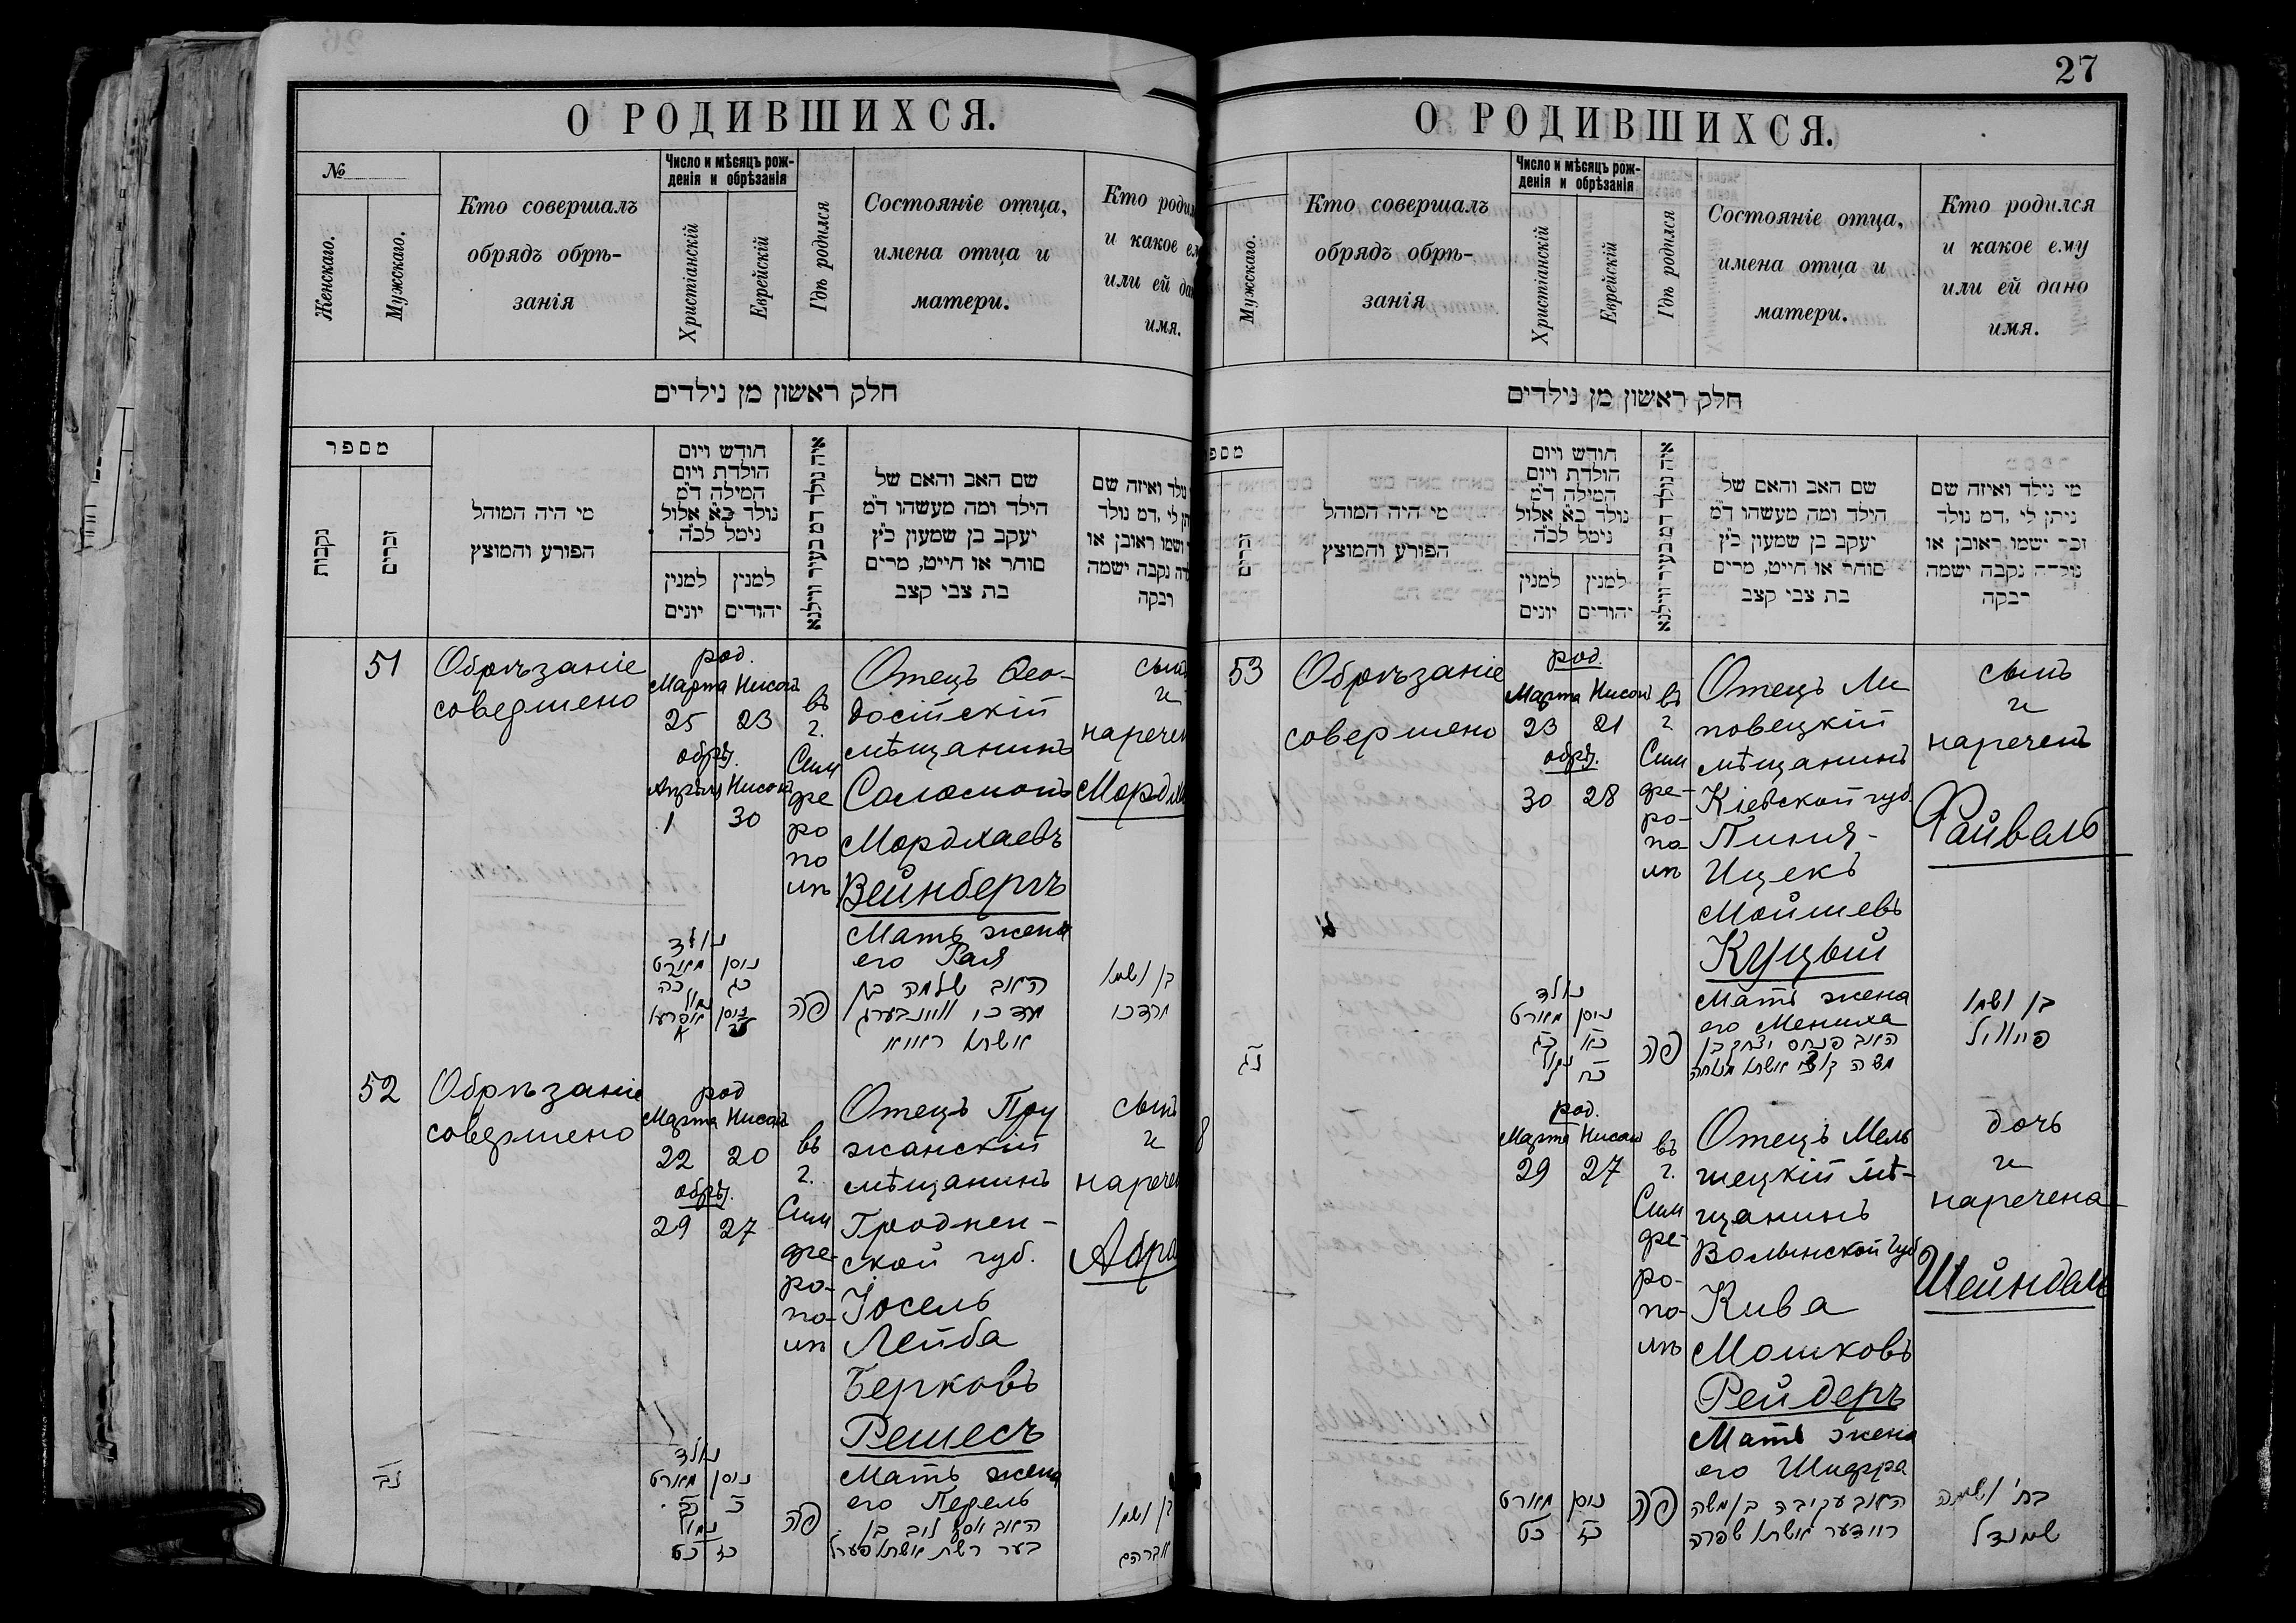 27
О РОДИВШИХСЯ.
№
Женскаго.
Мужскаго.
Кто совершалъ
обрядъ обрѣ-
занія
Число и мѣсяцъ рож-
денія и обрѣзанія
Христіанскій
Еврейскій
Гдѣ родился
Состояніе отца,
имена отца и
матери.
Кто роди
и какое е
или ей да
имя.
חלק ראשון מן נילדים
מספר
נקבות
זכרים
מי היה המוהל
הפורע והמוצץ
חודש ויום
הולדת ויום
המילה ד״מ
נולד כ״א אלול
נימל לכ״ה
למנין
יונים
למנין
יהודים
איה נולד דמ בעיר ווילנא
שם האב והאם של
הילד ומה מעשהו ד״מ
יעקב בן שמעון כ״ץ
סוחר או חייט, מרים
בת צבי קצב
נולד ואיזה שם
לי, דמ נולד
ושמו ראובן או
נקבה ישמה
רבקה
51
Обрѣзаніе
совершено
род.
Марта Нисонъ
25 23
обрѣз.
Апрѣля Нисонъ
1 30
въ
г.
Сим
фе
ро
по
лѣ
Отецъ Ѳео-
досійскій
мѣщанинъ
Саломонъ
Мордхаевъ
Вейнбергъ
Мать жена
его Рая
сынъ
и
наречен
Мордха
נולד
מארט ניסן
כה כג
נמול
פה
האב שלמה בן
מרדכי וויינבערג
אשתו
בן ושמו
מרדכי
52
Обрѣзаніе
совершено
род
Марта Нисонъ
22 20
обрѣз.
29 27
въ
г.
Сим
фе-
ро-
по-
лѣ
Отецъ Пру
жанскій
мѣщанинъ
Гроднен-
ской губ.
Іосель
Лейба
Берковъ
Решесъ
Мать жена
его Перель
сынъ
и
наречен
Абра
נב
נולד
מארט ניסן
כב כ
נמול
כט כז
פה
האב יוסף ליב בן
בער רשת אשתו פערל
בן ושמו
אברהם
О РОДИВШИХСЯ.
Мужскаго.
Кто совершалъ
обрядъ обрѣ-
занія
Число и мѣсяцъ рож-
денія и обрѣзанія
Христіанскій
Еврейскій
Гдѣ родился
Состояніе отца,
имена отца и
матери.
Кто родился
и какое ему
или ей дано
имя.
חלק ראשון מן נילדים
מספ
זכרים
מי היה המוהל
הפורע והמוצץ
חודש ויום
הולדת ויום
המילה ד״מ
נולד כ״א אלול
נימל לכ״ה
למנין
יונים
למנין
יהודים
איה נולד דמ בעיר ווילנא
שם האב והאם של
הילד ומה מעשהו ד״מ
יעקב בן שמעון כ״ץ
סוחר או חייט, מרים
בת צבי קצב
מי נילד ואיזה שם
ניתן לי, דמ נולד
זכר ישמו ראובן או
נולדה נקבה ישמה
רבקה
53
Обрѣзаніе
совершено
род.
Марта Нисонъ
23 21
обрѣз.
30 28
въ
г.
Сим
фе-
ро-
по-
лѣ
Отецъ Ли
повецкій
мѣщанинъ
Кіевской губ.
Пиния-
Ицекъ
Мойшевъ
Куцый
Мать жена
его Мениха
сынъ
и
нареченъ
Файвель
נג
נולד
מארט ניסן
כג כא
נמול
ל כח
פה
האב פנחס יצחק בן
משה קוצי אשתו מנוחה
בן ושמו
פייוויל
8
род.
Марта Нисонъ
29 27
въ
г.
Сим
фе-
ро-
по-
лѣ
Отецъ Мель
ницкій мѣ-
щанинъ
Волынской губ
Кива
Мошковъ
Рейдеръ
Мать жена
его Шифра
дочь
и
наречена
Шейндель
מארט ניסן
כט כז
פה
האב עקיבה בן משה
ריידער אשתו שפרה
בת ושמה
שיינדל